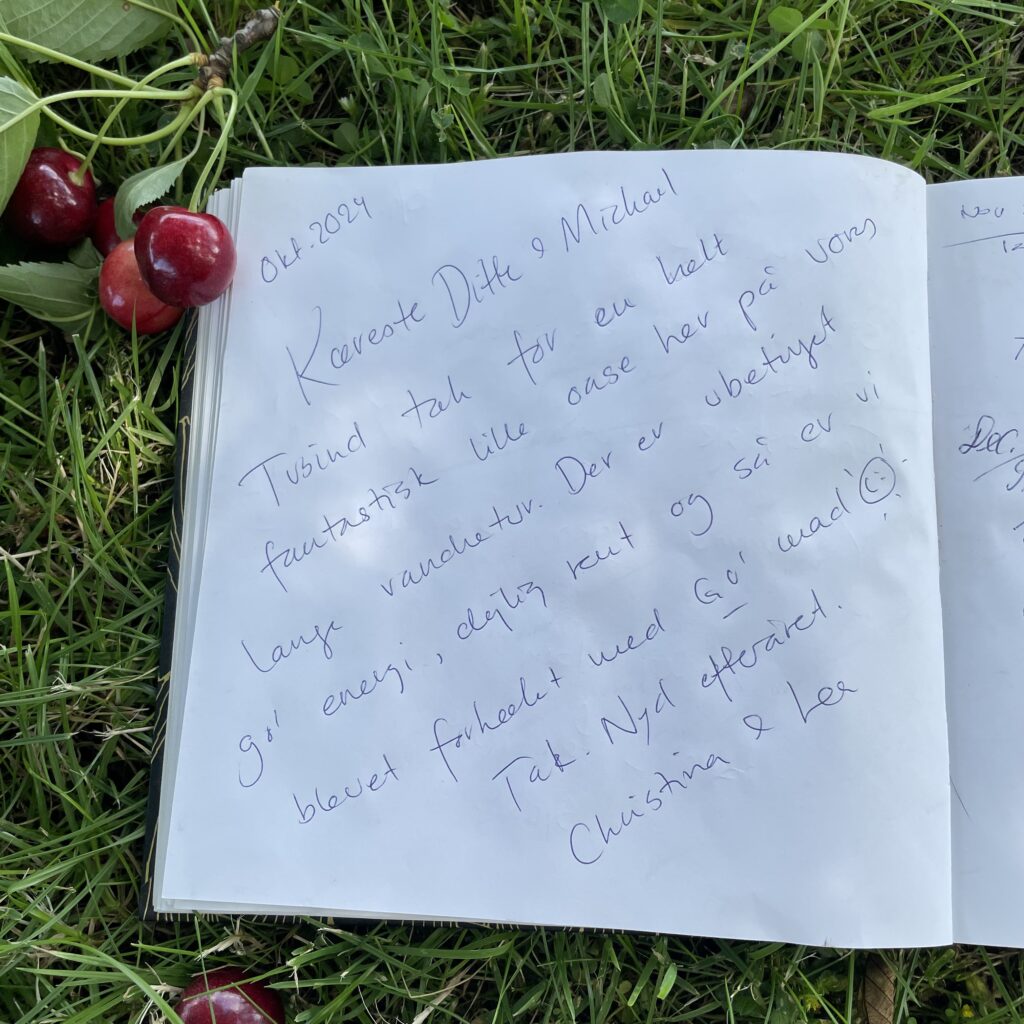 Okt. 2024
Kæreste Ditte & Michael
Tusind tak for en helt
fantastisk lille oase her på vores
lange vandretur. Der er ubetinget
go' energi, dejlig rent og så er vi
blevet forkælet med Go' mad ☺.
Tak. Nyd efteråret.
Christina & Lea
Nov
Dec.